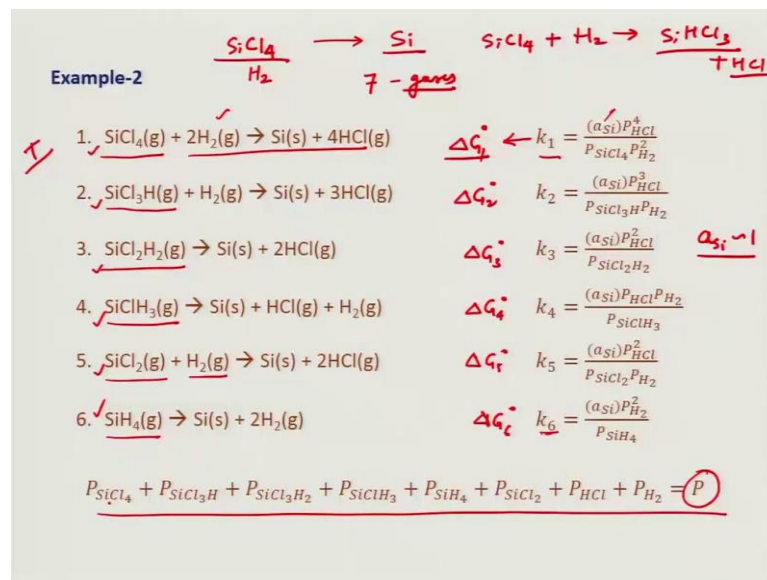 SiCl4/H2 → Si   SiCl4 + H2 → SiHCl3 + HCl
Example-2
7 - gases
T
1. SiCl₄(g) + 2H₂(g) → Si(s) + 4HCl(g)   ΔG₁° ← k₁ = (a_Si)P⁴_HCl / P_SiCl₄ P²_H₂
2. SiCl₃H(g) + H₂(g) → Si(s) + 3HCl(g)   ΔG₂°   k₂ = (a_Si)P³_HCl / P_SiCl₃H P_H₂
3. SiCl₂H₂(g) → Si(s) + 2HCl(g)   ΔG₃°   k₃ = (a_Si)P²_HCl / P_SiCl₂H₂   a_Si ~ 1
4. SiClH₃(g) → Si(s) + HCl(g) + H₂(g)   ΔG₄°   k₄ = (a_Si)P_HCl P_H₂ / P_SiClH₃
5. SiCl₂(g) + H₂(g) → Si(s) + 2HCl(g)   ΔG₅°   k₅ = (a_Si)P²_HCl / P_SiCl₂ P_H₂
6. SiH₄(g) → Si(s) + 2H₂(g)   ΔG₆°   k₆ = (a_Si)P²_H₂ / P_SiH₄
P_SiCl₄ + P_SiCl₃H + P_SiCl₃H₂ + P_SiClH₃ + P_SiH₄ + P_SiCl₂ + P_HCl + P_H₂ = P